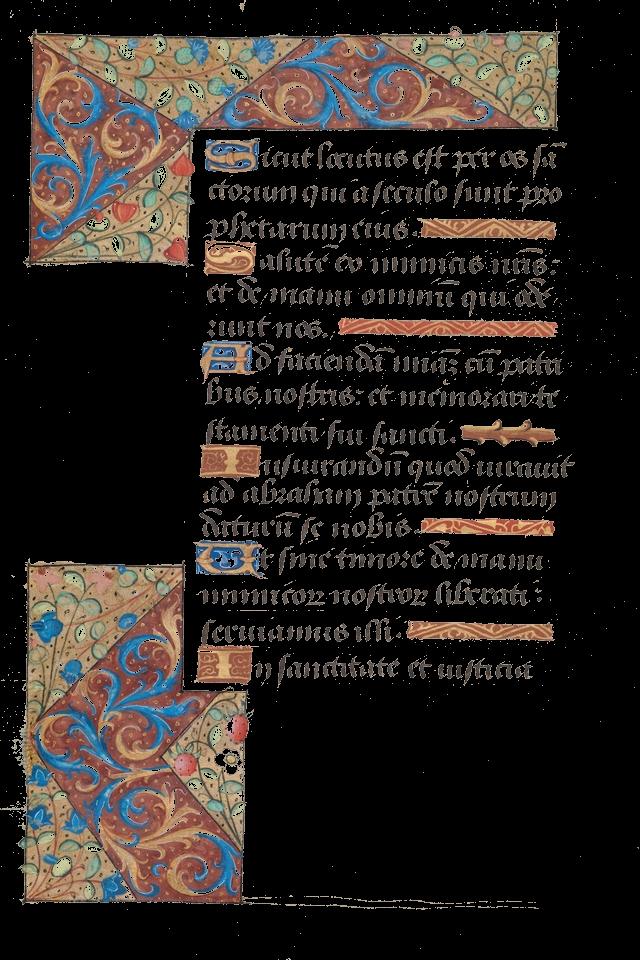 Sicut locutus est per os sā
ctorum qui a seculo sunt pro
phetarum eius.
Salutē ex inimicis nr̄is:
et de manu omniū qui ode
runt nos.
Ad faciendā mīaz cū patri
bus nostris: et memorari te
stamenti sui sancti.
Iusiurandū quod iurauit
ad abraham patrē nostrum
daturū se nobis.
Ut sine timore de manu
inimicoꝝ nostroꝝ liberati:
seruiamus illi.
In sanctitate et iusticia